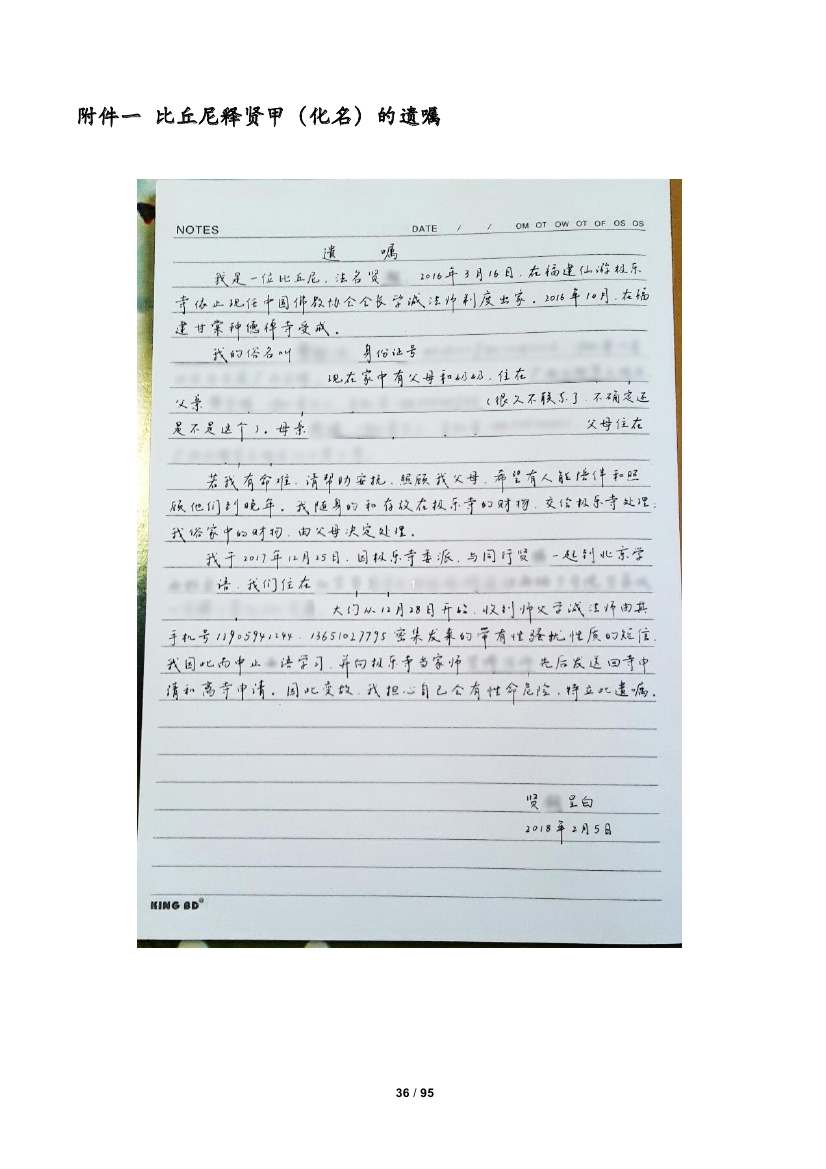 附件一 比丘尼释贤甲（化名）的遗嘱
NOTES DATE / / OM OT OW OT OF OS OS
遗 嘱
我是一位比丘尼，法名贤 2016年3月16日，在福建仙游极乐
寺依止现任中国佛教协会会长学诚法师剃度出家。2016年10月，在福
建甘棠种德禅寺受戒。
我的俗名叫 身份证号
现在家中有父母和奶奶，住在
父亲 （很久不联系了，不确定还
是不是这个）。母亲 父母住在
若我有命难，请帮助安抚、照顾我父母，希望有人能陪伴和照
顾他们到晚年。我随身的和存放在极乐寺的财物，交给极乐寺处理；
我俗家中的财物，由父母决定处理。
我于2017年12月25日，因极乐寺委派，与同行贤 一起到北京学
语，我们住在
大约从12月28日开始，收到师父学诚法师由其
手机号13905941244、13651027795密集发来的带有性骚扰性质的短信，
我因此而中止 语学习，并向极乐寺当家师 先后发送回寺申
请和离寺申请。因此变故，我担心自己会有性命危险，特立此遗嘱。
贤 呈白
2018年2月5日
KING BD®
36 / 95